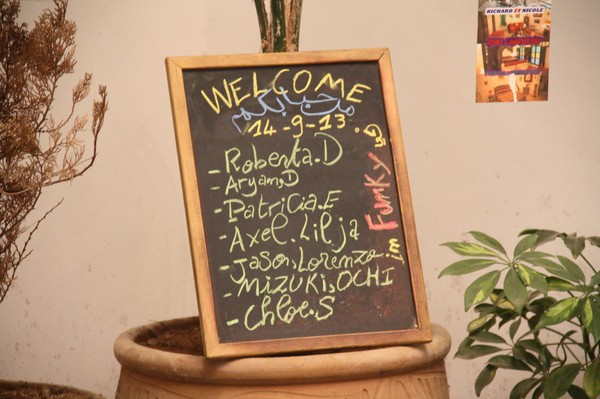 WELCOME
مرحبا بكم
14-9-13
- Roberta.D
- Aryam.D
- Patricia.E
- Axel.Lilja
- Jason.Lorenzo
- MIZUKI,OCHI
- Chloe.S
Funky
RICHARD ET NICOLE